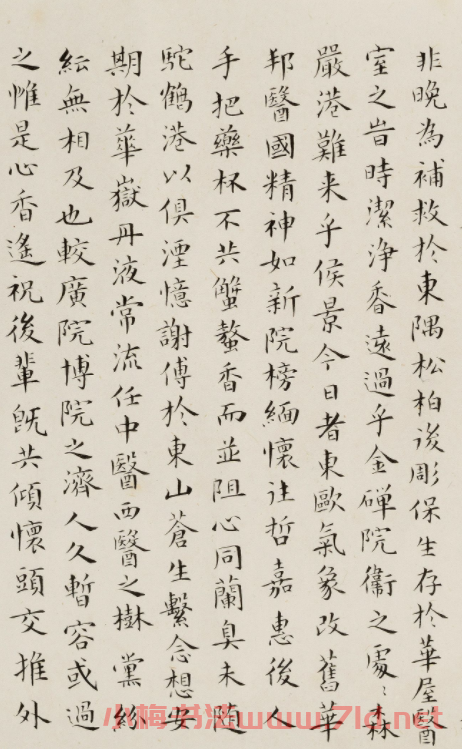 非晚為補救於東隅松柏後彫保生存於華屋醫
室之旹時潔淨香遠過乎金磾院衞之處〻森
嚴港難来乎候景今日者東歐氣象改舊華
邦醫國精神如新院榜緬懷往哲嘉惠後人
手把藥杯不共蟹螯香而並阻心同蘭臭未隨
駝鶴港以俱湮憶謝傅於東山蒼生繫念想安
期於華嶽丹液常流任中醫西醫之樹黨約
紜無相及也較廣院博院之濟人久暫容或過
之惟是心香遙祝後輩旣共傾懷頭交推外
小梅书法www.7ld.net